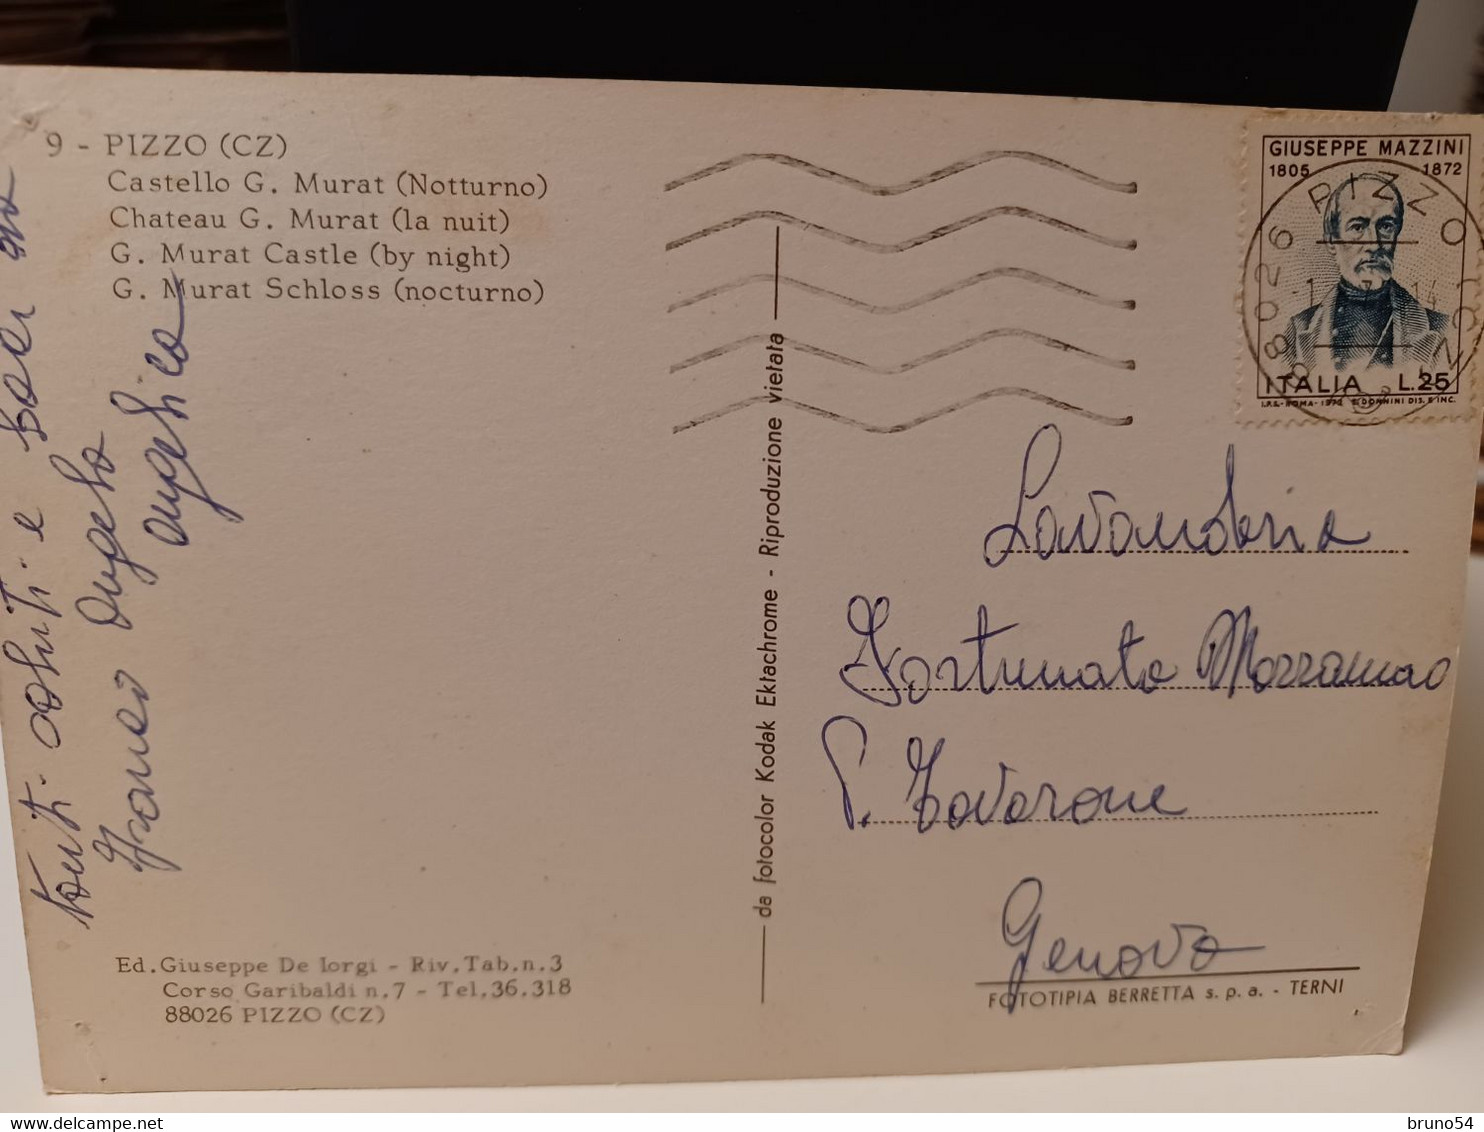 9 - PIZZO (CZ)
Castello G. Murat (Notturno)
Chateau G. Murat (la nuit)
G. Murat Castle (by night)
G. Murat Schloss (nocturno)
Tanti saluti e baci
Franco Angela
Angelica
Ed. Giuseppe De Iorgi - Riv. Tab. n. 3
Corso Garibaldi n. 7 - Tel. 36.318
88026 PIZZO (CZ)
da fotocolor Kodak Ektachrome - Riproduzione vietata
GIUSEPPE MAZZINI
1805 1872
88026 PIZZO
ITALIA L.25
I.P.S.-ROMA-1972 E.DONNINI DIS. E INC.
Lavanderia
Fortunato
P. Tavarone
Genova
FOTOTIPIA BERRETTA s. p. a. - TERNI
bruno54